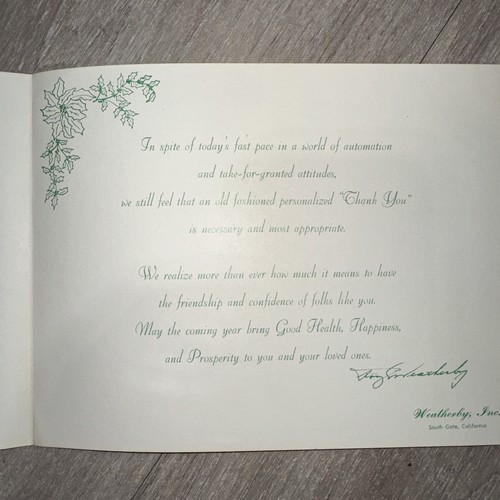 In spite of today's fast pace in a world of automation
and take-for-granted attitudes,
we still feel that an old fashioned personalized "Thank You"
is necessary and most appropriate.
We realize more than ever how much it means to have
the friendship and confidence of folks like you.
May the coming year bring Good Health, Happiness,
and Prosperity to you and your loved ones.
Roy E. Weatherby
Weatherby, Inc.
South Gate, California